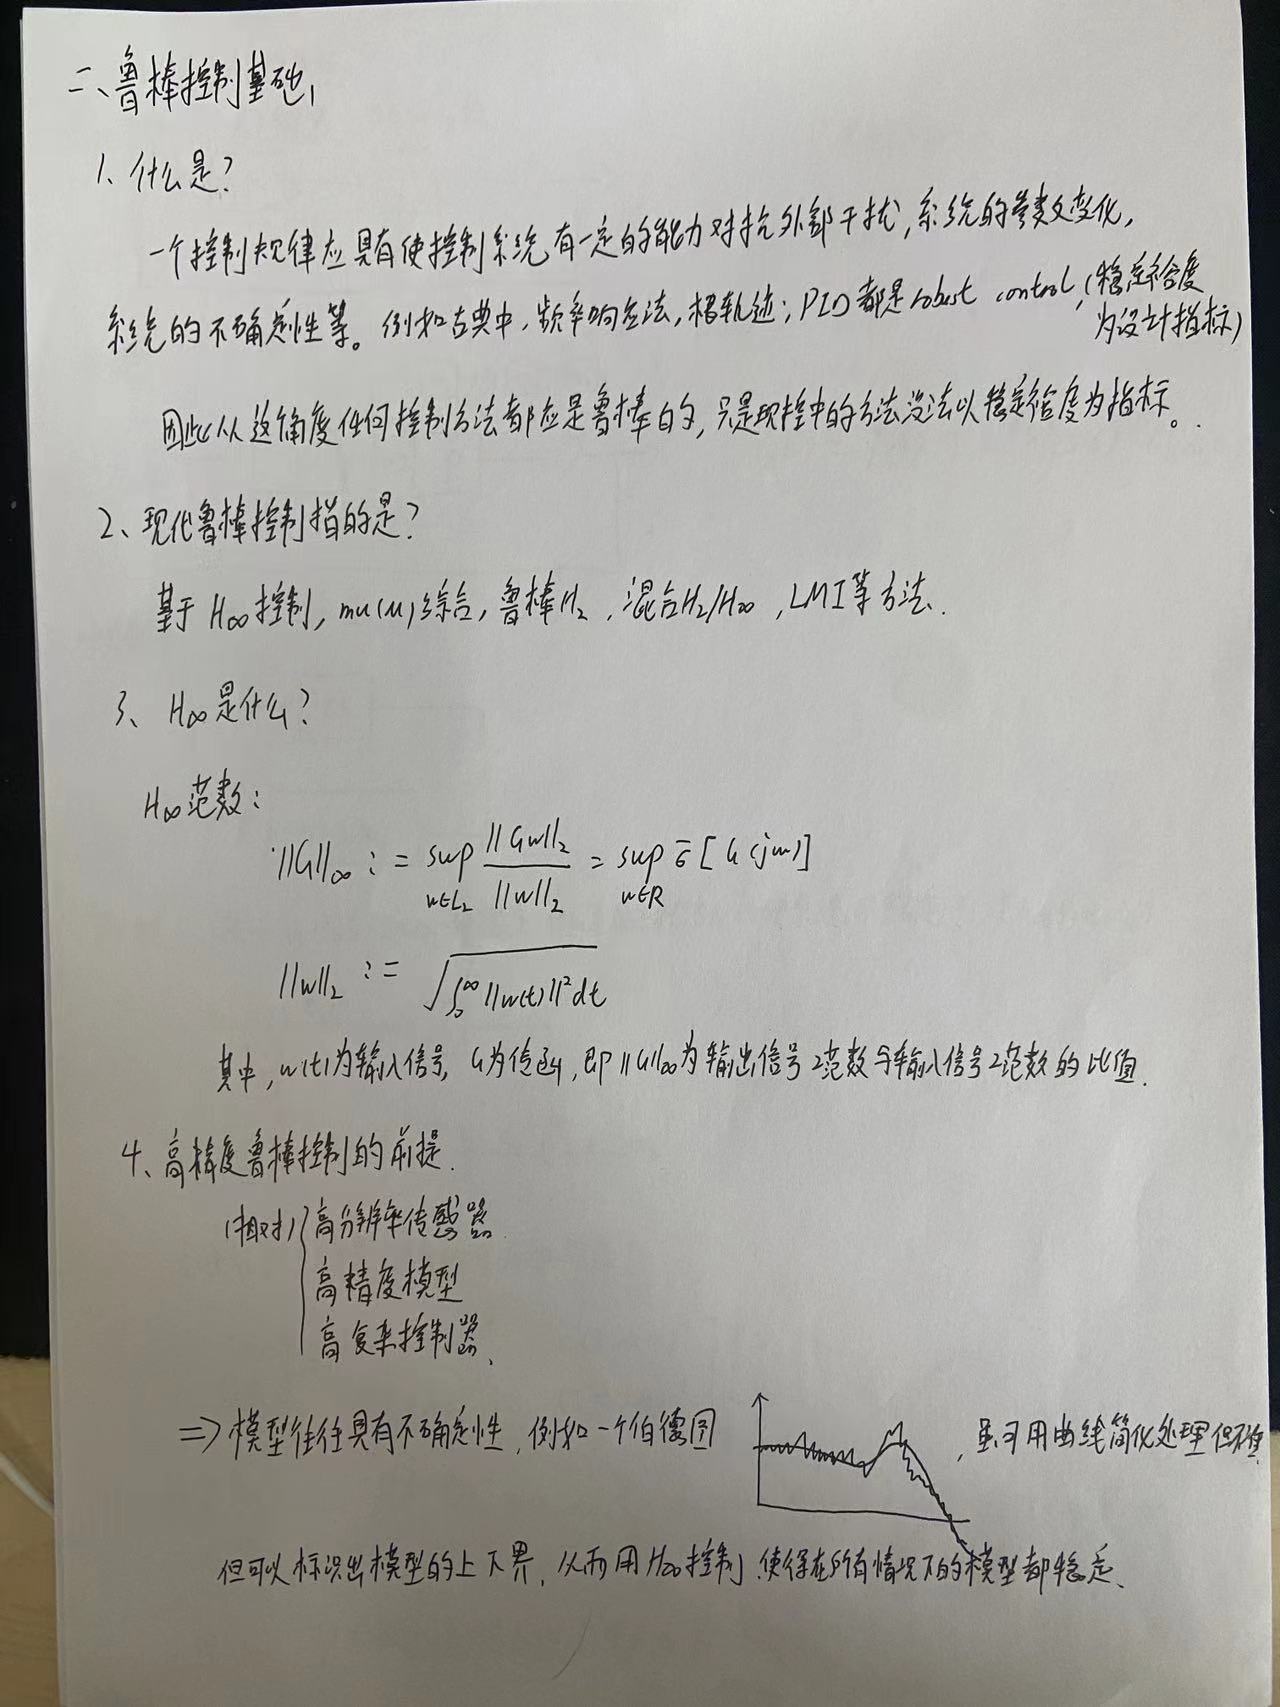 二、鲁棒控制基础
1、什么是?
一个控制规律应具有使控制系统有一定的能力对抗外部干扰,系统的参数变化,
系统的不确定性等。例如古典中,频率响应法,根轨迹;PID都是robust control,(稳定裕度
为设计指标)
因此从这角度任何控制方法都应是鲁棒的,只是现控中的方法没法以稳定裕度为指标。
2、现代鲁棒控制指的是?
基于H∞控制,mu(μ)综合,鲁棒H₂,混合H₂/H∞,LMI等方法.
3、H∞是什么?
H∞范数:
||G||∞ := sup_{w∈L₂} ||Gw||₂ / ||w||₂ = sup_{w∈R} σ̄[G(jw)]
||w||₂ := √(∫₀^∞ ||w(t)||² dt)
其中,w(t)为输入信号,G为传函,即||G||∞为输出信号2范数与输入信号2范数的比值.
4、高精度鲁棒控制的前提.
(相对){高分辨率传感器
高精度模型
高复杂控制器、
=>模型往往具有不确定性,例如一个伯德图 ,虽可用曲线简化处理但不准
但可以标识出模型的上下界,从而用H∞控制使得在所有情况下的模型都稳定、